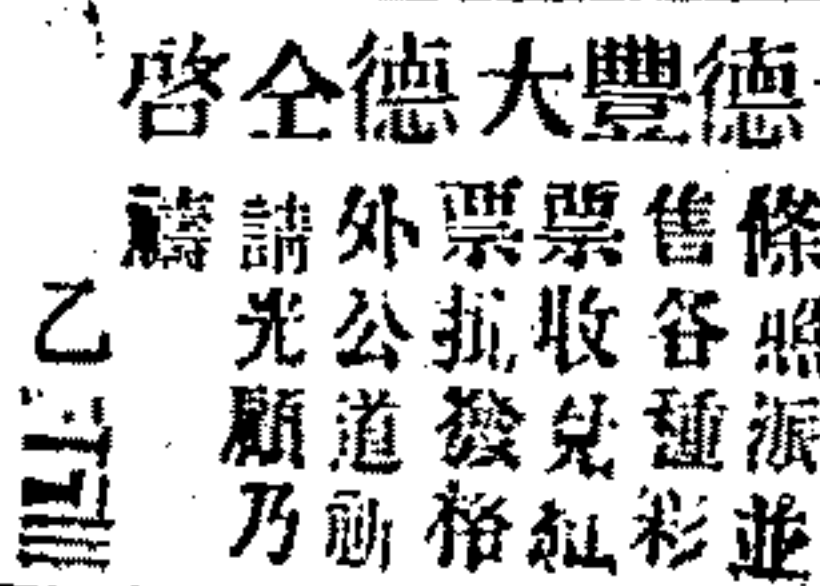 德豐大德仝啓
條照派並
售各種彩
票收兌紅
票批發格
外公道祈
請光顧乃
禱
乙